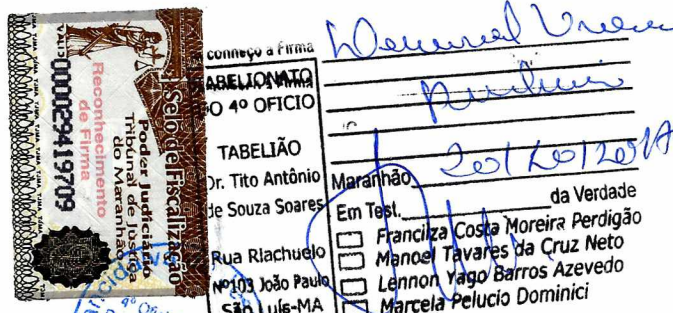 Selo de Fiscalização
Poder Judiciário
Tribunal de Justiça
do Maranhão
Reconhecimento
de Firma
000029419709
conheço a Firma
TABELIONATO
DO 4º OFICIO
TABELIÃO
Dr. Tito Antônio
de Souza Soares
Rua Riachuelo
Nº103 João Paulo
São Luís-MA
Maranhão
Em Test. da Verdade
Francilza Costa Moreira Perdigão
Manoel Tavares da Cruz Neto
Lennon Yago Barros Azevedo
Marcela Pelucio Dominici